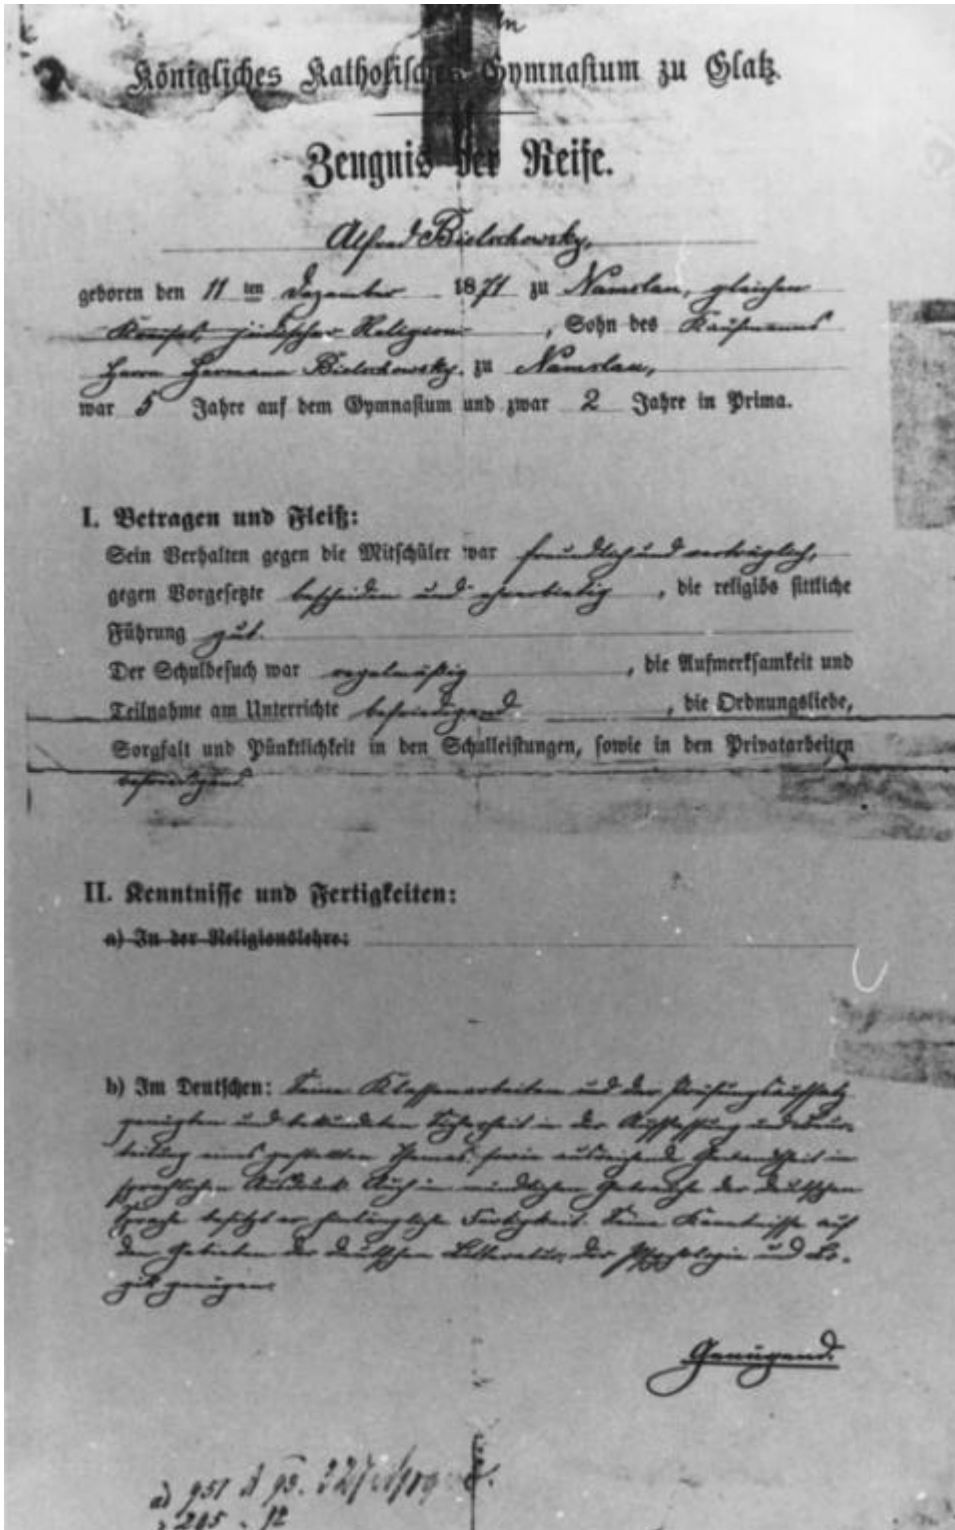 Königliches Katholisches Gymnasium zu Glatz.
Zeugnis der Reife.
Alfred Bielschowsky,
geboren den 11 ten Dezember 1871 zu Namslau, gleichen
Kreises, jüdischer Religion, Sohn des Kaufmanns
Herrn Hermann Bielschowsky zu Namslau,
war 5 Jahre auf dem Gymnasium und zwar 2 Jahre in Prima.
I. Betragen und Fleiß:
Sein Verhalten gegen die Mitschüler war freundlich und verträglich,
gegen Vorgesetzte bescheiden und ehrerbietig, die religiös sittliche
Führung gut.
Der Schulbesuch war regelmäßig, die Aufmerksamkeit und
Teilnahme am Unterrichte befriedigend, die Ordnungsliebe,
Sorgfalt und Pünktlichkeit in den Schulleistungen, sowie in den Privatarbeiten
befriedigend.
II. Kenntnisse und Fertigkeiten:
a) In der Religionslehre:
b) Im Deutschen: Seine Klassenarbeiten und der Prüfungsaufsatz
genügten und bekundeten Sicherheit in der Auffassung und Beur-
teilung eines gestellten Themas, sowie ausreichende Gewandtheit im
sprachlichen Ausdruck. Auch im mündlichen Gebrauche der deutschen
Sprache besitzt er hinlängliche Fertigkeit. Seine Kenntnisse auf
dem Gebieten der deutschen Litteratur, der Psychologie und Lo-
gik genügen.
Genügend.
a) 951